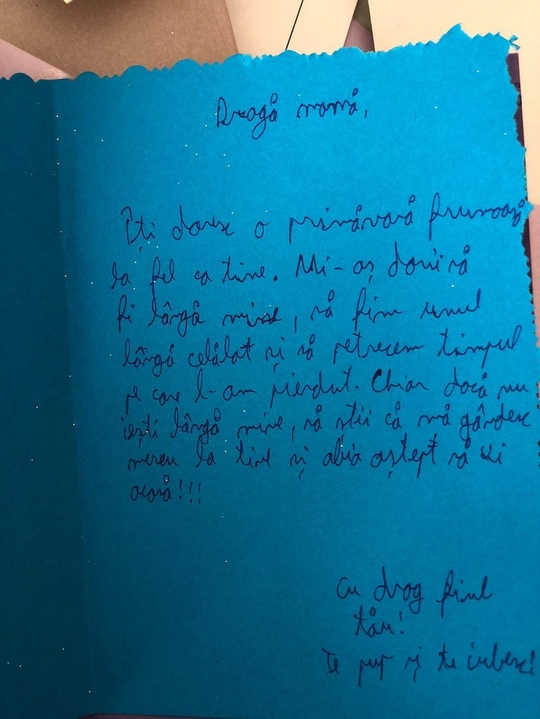 Dragă mamă,
Îți doresc o primăvară frumoasă
la fel ca tine. Mi-aș dori să
fi lângă mine, să fim unul
lângă celălat și să petrecem timpul
pe care l-am pierdut. Chiar dacă nu
iești lângă mine, să stii că mă gândesc
mereu la tine și abia aștept să vi
acasă!!!
Cu drag fiul
tău!
Te pup și te iubesc!